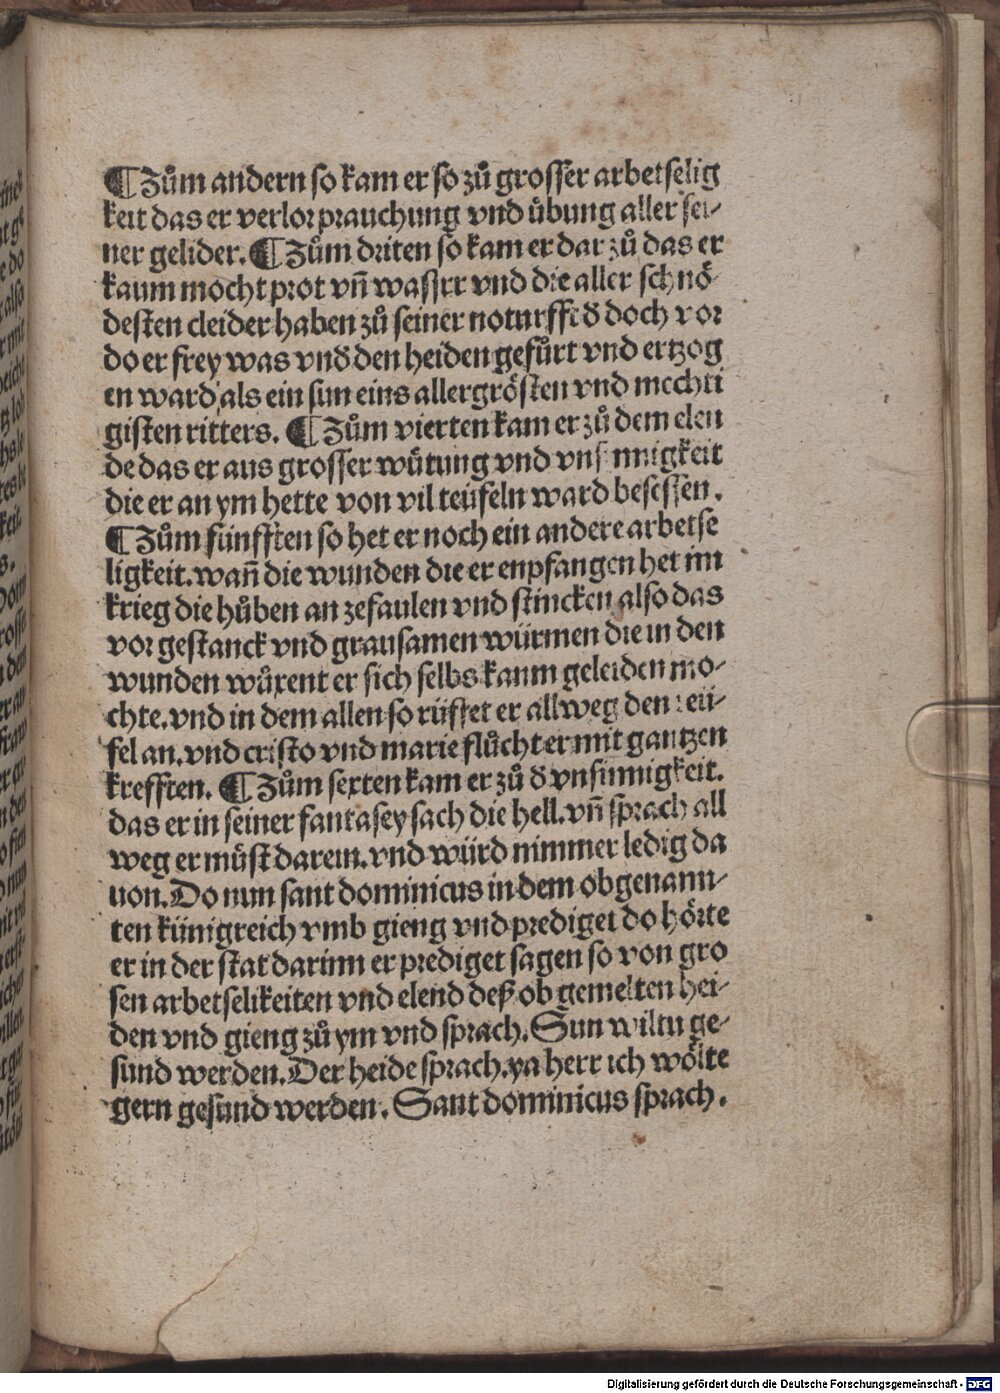 ¶ Zům andern so kam er so zů grosser arbetselig
keit das er verlor prauchung vnd übung aller sei-
ner gelider. ¶ Zům driten so kam er dar zů das er
kaum mocht prot vñ wasser vnd die aller schnö-
desten cleider haben zů seiner noturfft d doch vor
do er frey was vnd den heiden gefůrt vnd ertzog
en ward als ein sun eins allergrösten vnd mechti
gisten ritters. ¶ Zům vierten kam er zů dem elen
de das er aus grosser wůtung vnd vnsinnigkeit
die er an ym hette von vil teüfeln ward besessen.
¶ Zům fünfften so het er noch ein andere arbetse
ligkeit. wañ die wunden die er enpfangen het im
krieg die hůben an zefaulen vnd stincken also das
vor gestanck vnd grausamen würmen die in den
wunden wůxent er sich selbs kaum geleiden mo-
chte. vnd in dem allen so rüffet er allweg den teü-
fel an. vnd cristo vnd marie flůcht er mit gantzen
krefften. ¶ Zům sexten kam er zů d vnsinnigkeit.
das er in seiner fantasey sach die hell. vñ sprach all
weg er müst darein. vnd würd nimmer ledig da
uon. Do nun sant dominicus in dem obgenann-
ten künigreich vmb gieng vnd prediget do hörte
er in der stat darinn er prediget sagen so von gro
sen arbetselikeiten vnd elend deß ob gemelten hei-
den vnd gieng zů ym vnd sprach. Sun wiltu ge-
sund werden. Der heide sprach. ya herr ich wölte
gern gesund werden. Sant dominicus sprach.
Digitalisierung gefördert durch die Deutsche Forschungsgemeinschaft - DFG